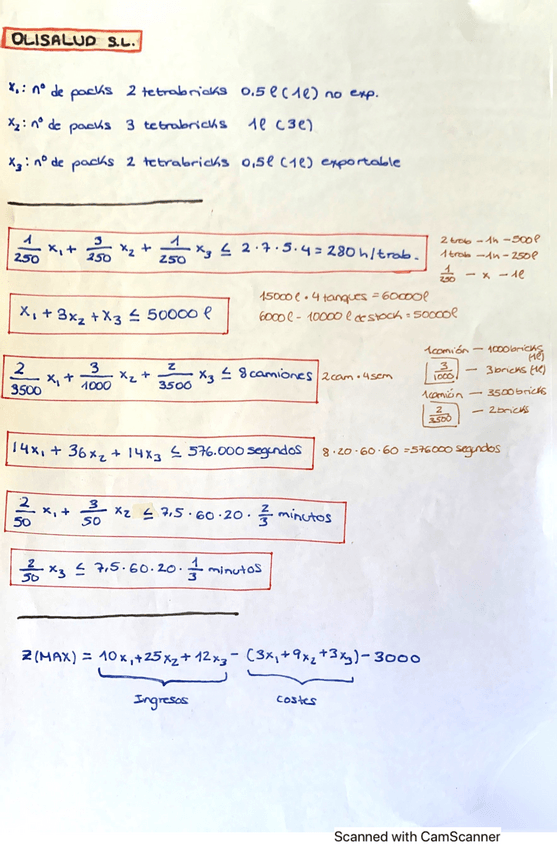 OLISALUD S.L.
x₁: nº de packs 2 tetrabricks 0,5ℓ (1ℓ) no exp.
x₂: nº de packs 3 tetrabricks 1ℓ (3ℓ)
x₃: nº de packs 2 tetrabricks 0,5ℓ (1ℓ) exportable
1/250 x₁ + 3/250 x₂ + 1/250 x₃ ≤ 2·7·5·4 = 280 h/trab.
2 trab – 1h – 500ℓ
1 trab – 1h – 250ℓ
1/250 – x – 1ℓ
x₁ + 3x₂ + x₃ ≤ 50000 ℓ
15000ℓ · 4 tanques = 60000ℓ
6000ℓ - 10000ℓ de stock = 50000ℓ
2/3500 x₁ + 3/1000 x₂ + 2/3500 x₃ ≤ 8 camiones
2 cam · 4 sem
1 camión – 1000 bricks (1ℓ)
3/1000 – 3 bricks (1ℓ)
1 camión – 3500 bricks
2/3500 – 2 bricks
14x₁ + 36x₂ + 14x₃ ≤ 576.000 segundos
8·20·60·60 = 576000 segundos
2/50 x₁ + 3/50 x₂ ≤ 7,5·60·20·2/3 minutos
2/50 x₃ ≤ 7,5·60·20·1/3 minutos
Z(MAX) = 10x₁+25x₂+12x₃ - (3x₁+9x₂+3x₃) - 3000
Ingresos
costes
Scanned with CamScanner